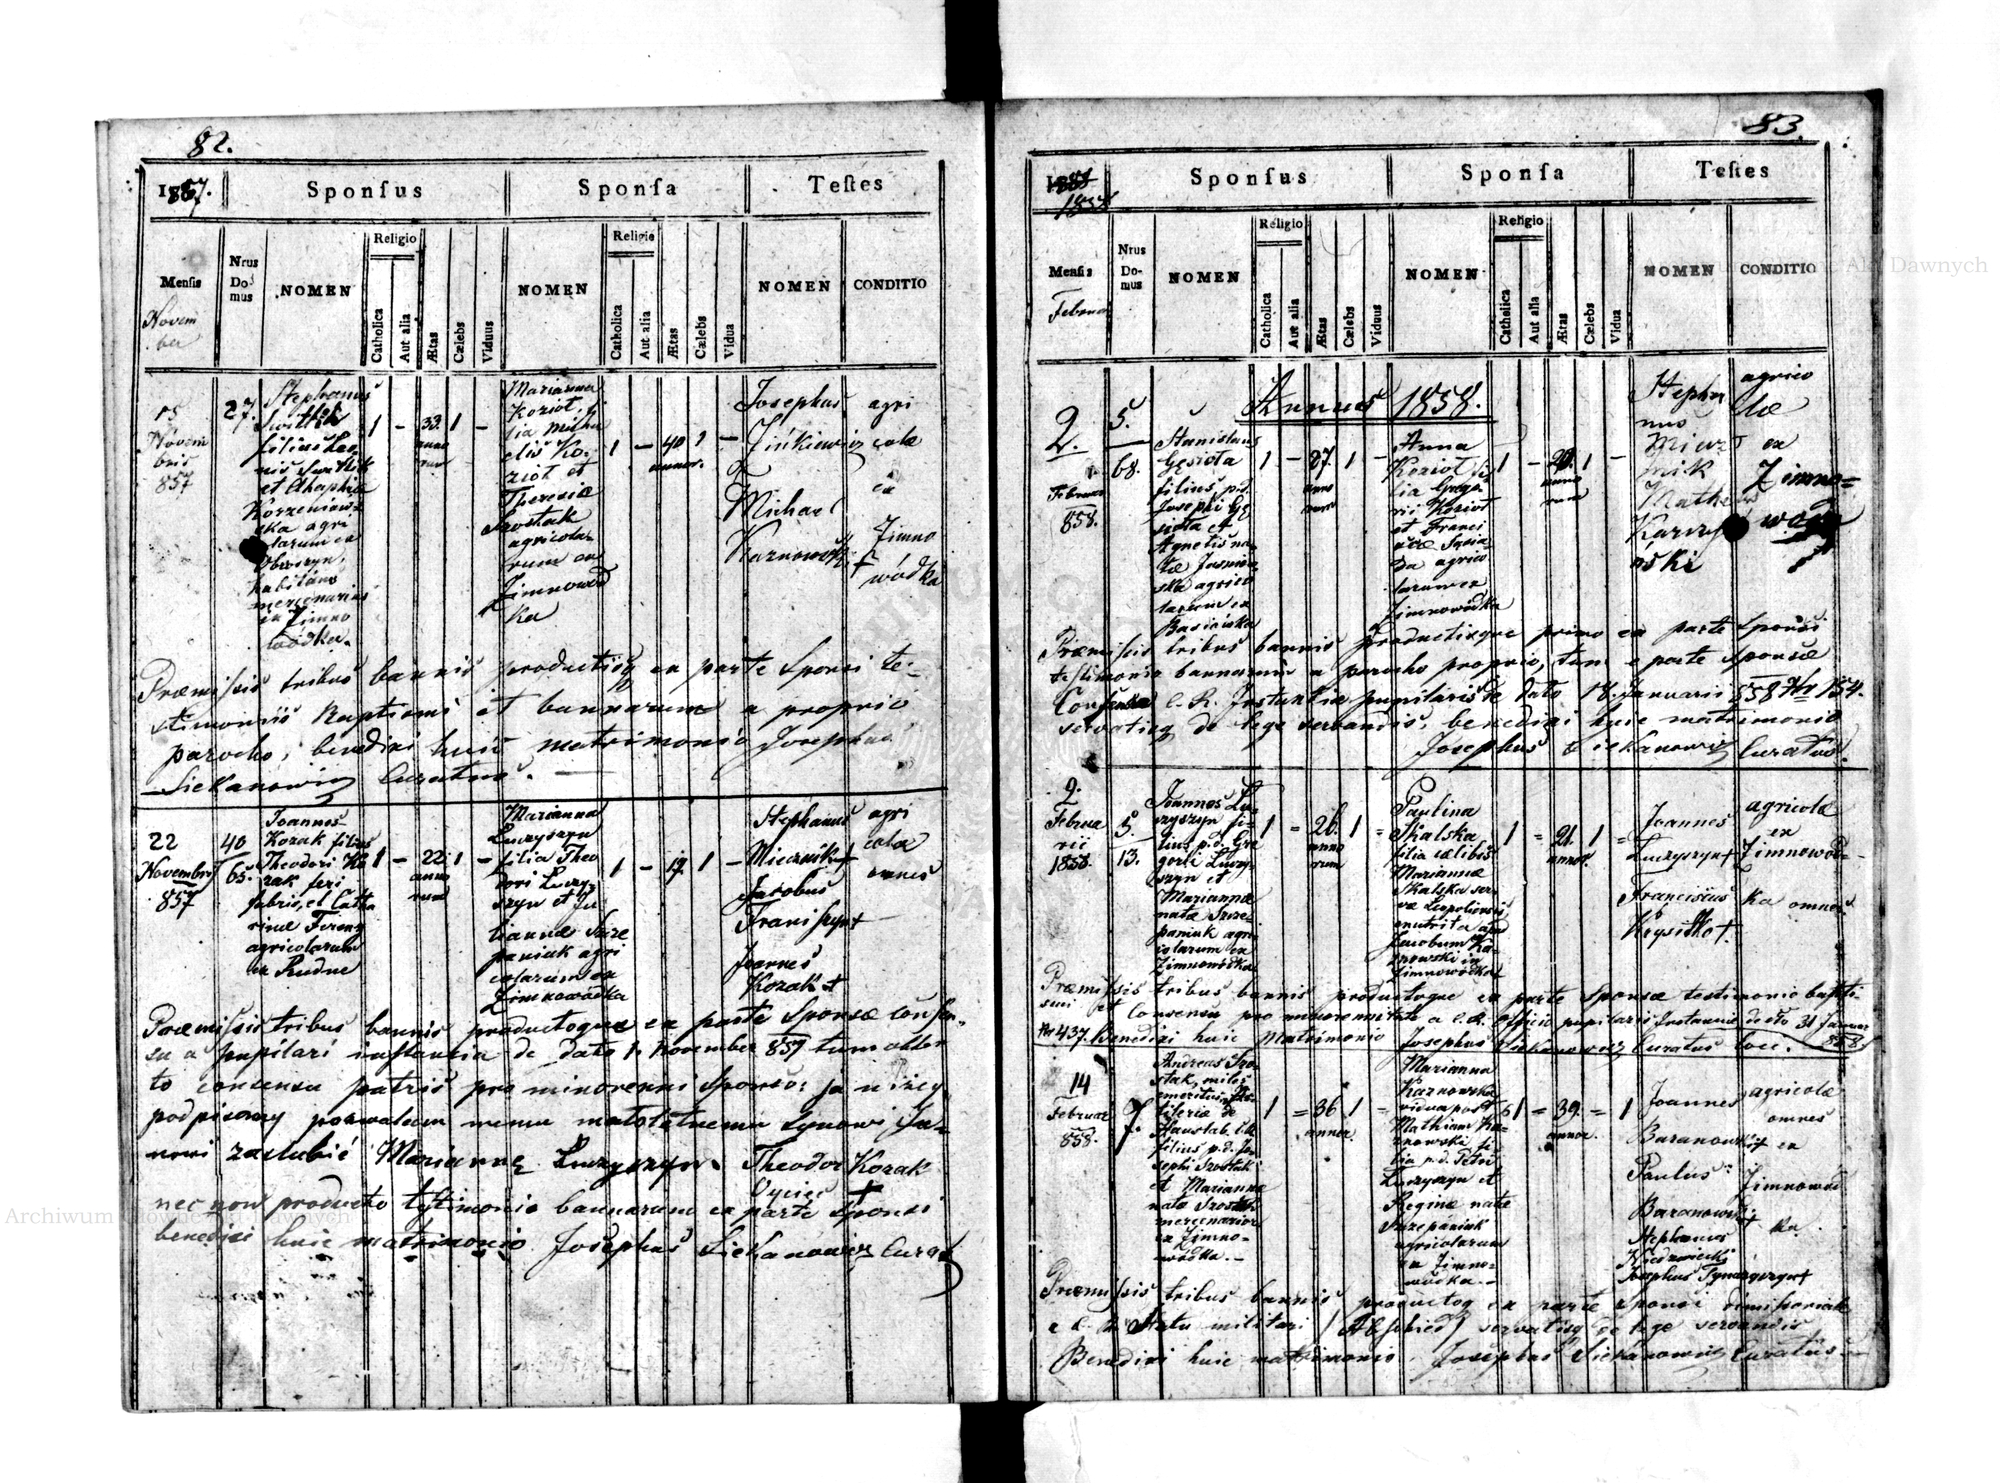 82.
1857.
Sponsus
Sponsa
Testes
Mensis
Novem
ber
Nrus
Do
mus
NOMEN
Religio
Catholica
Aut alia
Ætas
Cælebs
Viduus
NOMEN
Religio
Catholica
Aut alia
Ætas
Cælebs
Vidua
NOMEN
CONDITIO
15
Novem
bris
857
27.
Stephanus
filius
et Agaphiæ
Korzeniow
ska agri
colarum ex
Obroszyn,
habitans
mercenarius
in Zimno
wódka.
1 - 33. 1 -
anno
rum
Marianna
Kozioł
filia Micha
elis Ko
zioł et
Theresiæ
Szostak
agricola
rum ex
Zimnowód
ka
1 - 40 1 -
annor.
Josephus
Zinkiewicz
Michael
Karnowski
agri
colæ
ex
Zimno
wódka
Præmissis tribus bannis productisq ex parte Sponsi te-
stimoniis Baptismi et bannorum a proprio
parocho, benedixi huic matrimonio Josephus
Siekanowicz Curatus.
22
Novembris
857
40
65.
Joannes
Kozak filius
Theodori Ko
zak feri
fabris, et Catha
rinæ Ferenz
agricolarum
ex Rudne
1 - 22 1 -
anno
rum
Marianna
Luczyszyn
filia Theo
dori Luczy
szyn et Ju
liannæ Szcze
paniuk agri
colarum ex
Zimnowódka
1 - 17. 1 -
Stephanus
Mieczuik+
Jacobus
Franiszyn+
Joannes
Kozak+
agri
colæ
omnes
Præmissis tribus bannis productoque ex parte Sponsæ consen-
su a pupilari instancia de dato 1. November 857 tum obten
to consensu patris pro minorenni Sponso: ja niżey
podpisany pozwalam memu małoletnemu synowi Ja-
nowi zaslubić Mariannę Luczyszyn. Theodor Kozak
Oyciec +
nec non producto testimonio bannorum ex parte Sponsi
benedixi huic matrimonio Josephus Siekanowicz Curat
83.
1858
Sponsus
Sponsa
Testes
Mensis
Februa
Nrus
Do-
mus
NOMEN
Religio
Catholica
Aut alia
Ætas
Cælebs
Viduus
NOMEN
Religio
Catholica
Aut alia
Ætas
Cælebs
Vidua
NOMEN
CONDITIO
Annus 1858.
2.
Februar
858.
5.
68.
Stanislaus
Gęsiota
filius p.d.
Josephi Gę
siota et
Agnetis na
tæ
agrico
larum ex
Basiówka
1 - 37. 1 -
anno
rum
Anna
Kozioł fi
lia Grego
rii Kozioł
et Franci
scæ
agrico
larum ex
Zimnowódka
1 - 20. 1 -
anno
rum
Stepha
nus
Mathæus
agrico
læ
ex
Zimno=
wodka
Præmissis tribus bannis productisque primo ex parte Sponsi
testimonio bannorum a parocho proprio, tum e parte Sponsæ
Consensu C. R. Instantiæ pupilaris de dato 18. Januarii 858 Nr 154.
servatisq de lege servandis, benedixi huic matrimonio
Josephus Siekanowicz Curatus.
9.
Februa
rii
1858.
5.
13.
Joannes Lu
czyszyn fi-
lius p.d. Gre
gorii Luczy
szyn et
Mariannæ
natæ Szcze
paniuk agri
colarum ex
Zimnowódka
1 = 26. 1 =
anno
rum
Paulina
Skalska
filia cælibis
Mariannæ
Skalska ser
væ Leopoliensis
nutrita apud
Jacobum Ka
rnowski in
Zimnowódka
1 = 21. 1 =
annor.
Joannes
Luczyszyn+
Franciscus
Krysitko+.
agricolæ
ex
Zimnowód-
ka omnes
Præmissis tribus bannis productoque ex parte Sponsæ testimonio bapti-
smi et Consensu pro minorennitate a C.R. Officio pupilari Instantiæ de dto 31 Januar
858
Nr 437. Benedixi huic Matrimonio Josephus Siekanowicz Curatus loci.
14
Februar
858.
7.
Andreas Szo
stak, miles
emeritus Ar
tileriæ de
filius p.d. Jo
sephi Szostak
et Mariannæ
nata
mercenarior
ex Zimno=
wódka.-
1 = 36. 1 =
annor.
Marianna
Karnowska
vidua post
Mathiam Ka
rnowski fi
lia p.d. Petri
Luczyszyn et
Reginæ natæ
Szczepaniuk
agricolarum
ex Zimno=
wódka.-
1 = 39. = 1
annor.
Joannes
Baranowski+
Paulus
Baranowski+
Stephanus
Niedzwiecki
Josephus
agricolæ
omnes
ex
Zimnowód
ka
Præmissis tribus bannis productoq ex parte sponsi dimissoriale
e C. R. Statu militari /Abschied/ servatisq de lege servandis
Benedixi huic matrimonio. Josephus Siekanowicz Curatus
Archiwum Główne Akt Dawnych